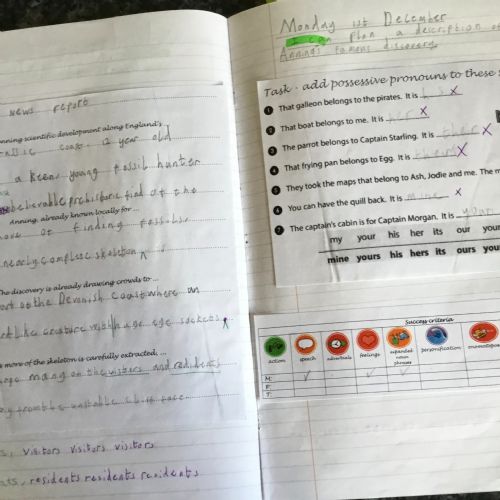 News report
nning scientific development along England's ...
assic coast. 12 year old
a keen young fossil hunter
believable prehistoric find of the
Anning, already known locally for ...
love of finding fossils,
nearly complete skeleton
The discovery is already drawing crowds to ...
of the Devonish coast where an
like creature with huge eye sockets
s more of the skeleton is carefully extracted, ...
on the visitors and redidents
unstable cliff face.
s, visitors visitors visitors
nts, residents residents residents
Monday 1st December
I can plan a description of
Annings famous discovery.
Task - add possessive pronouns to these s
1 That galleon belongs to the pirates. It is x
2 That boat belongs to me. It is her x
3 The parrot belongs to Captain Starling. It is x
4 That frying pan belongs to Egg. It is x
5 They took the maps that belong to Ash, Jodie and me. The m
6 You can have the quill back. It is mine x
7 The captain's cabin is for Captain Morgan. It is
my your his her its our your
mine yours his hers its ours you
Success criteria
action speech adverbials feelings expanded noun phrases personification onomatopoe
M:
P:
T: